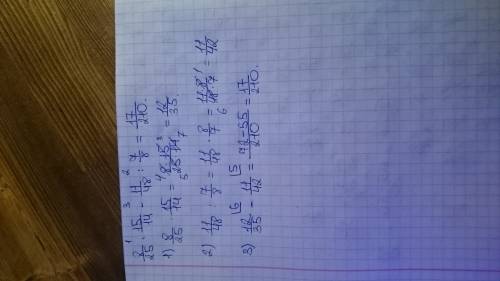 8/25 · 15/14 - 11/48 : 7/8 = 17/210.
1) 8/25 · 15/14 = 8·15/25·14 = 12/35.
2) 11/48 : 7/8 = 11/48 · 8/7 = 11·8/48·7 = 11/42
3) 12/35 - 11/42 = 72-55/210 = 17/210.